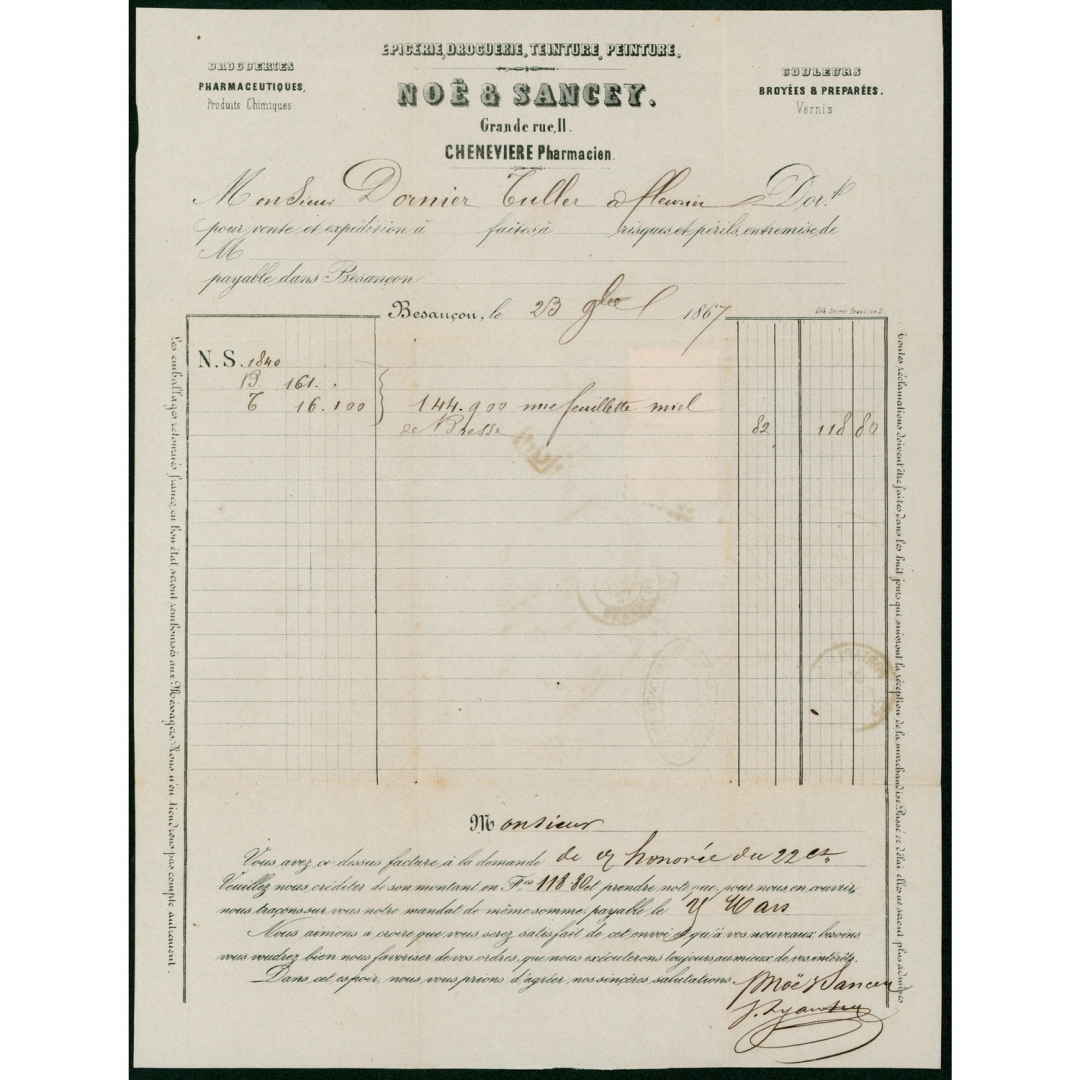 EPICERIE, DROGUERIE, TEINTURE, PEINTURE.
DROGUERIES
PHARMACEUTIQUES,
Produits Chimiques
NOË & SANCEY.
Grande rue, 11.
CHENEVIERE Pharmacien.
COULEURS
BROYÉES & PREPARÉES.
Vernis
Monsieur Dornier Tuller à fleurier Doi.t
pour vente et expédition à faites à risques et périls, entremise de
M
payable dans Besançon
Besançon, le 23 9bre 1867
Les emballages retournés franco, en bon état, seront remboursés aux Ménagers. Nous n'en tiendrons pas compte autrement.
N.S. 1840
B. 161.
T 16.100
144.900 une feuillette miel
de Bresse 82 118 80
Toutes réclamations doivent être faites dans les huit jours qui suivront la réception de la marchandise. Passé ce délai elles ne seront plus admises
Monsieur
Vous avez ci dessus facture à la demande de honorée du 22 ct
Veuillez nous créditer de son montant en Fcs 118.80 et prendre note que, pour nous en couvrir,
nous traçons sur vous notre mandat de même somme, payable le Mars
Nous aimons à croire que vous serez satisfait de cet envoi et qu'à vos nouveaux besoins
vous voudrez bien nous favoriser de vos ordres, que nous exécuterons toujours au mieux de vos intérêts.
Dans cet espoir, nous vous prions d'agréer nos sincères salutations
Noë & Sancey